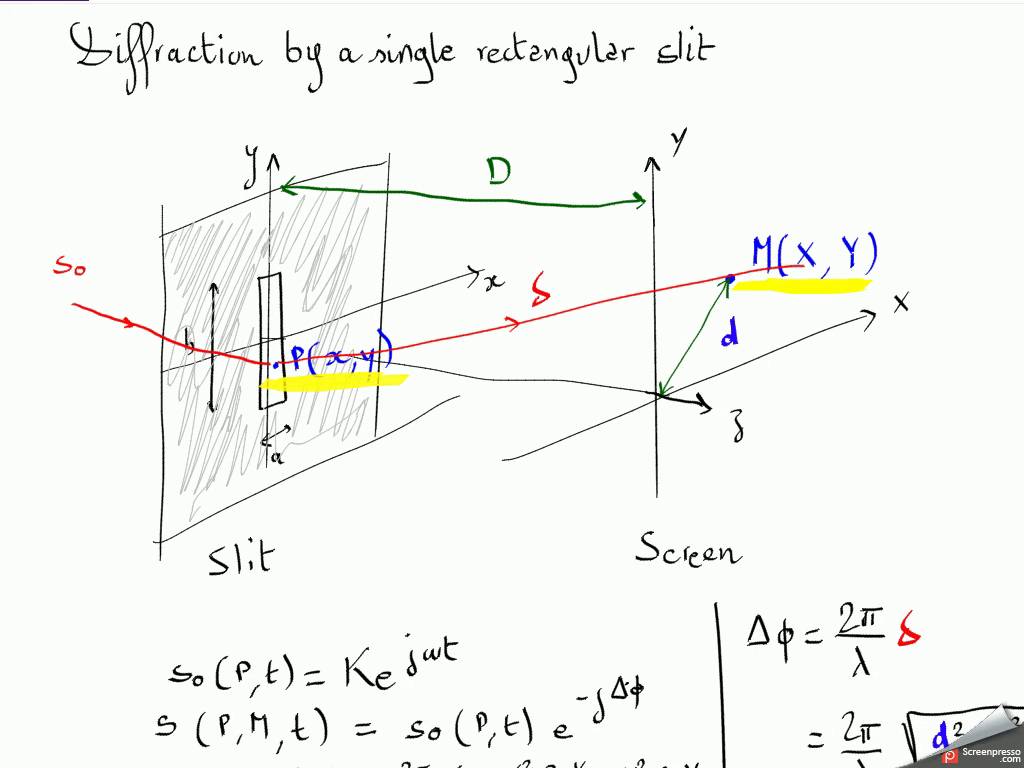 Diffraction by a single rectangular slit
y
D
Y
M(X, Y)
s₀
x
δ
X
b
P(x,y)
d
z
a
Slit
Screen
s₀(P,t) = K e^{jωt}
s(P,M,t) = s₀(P,t) e^{-jΔϕ}
Δϕ = 2π/λ δ
= 2π/λ √d²
Screenpresso
.com